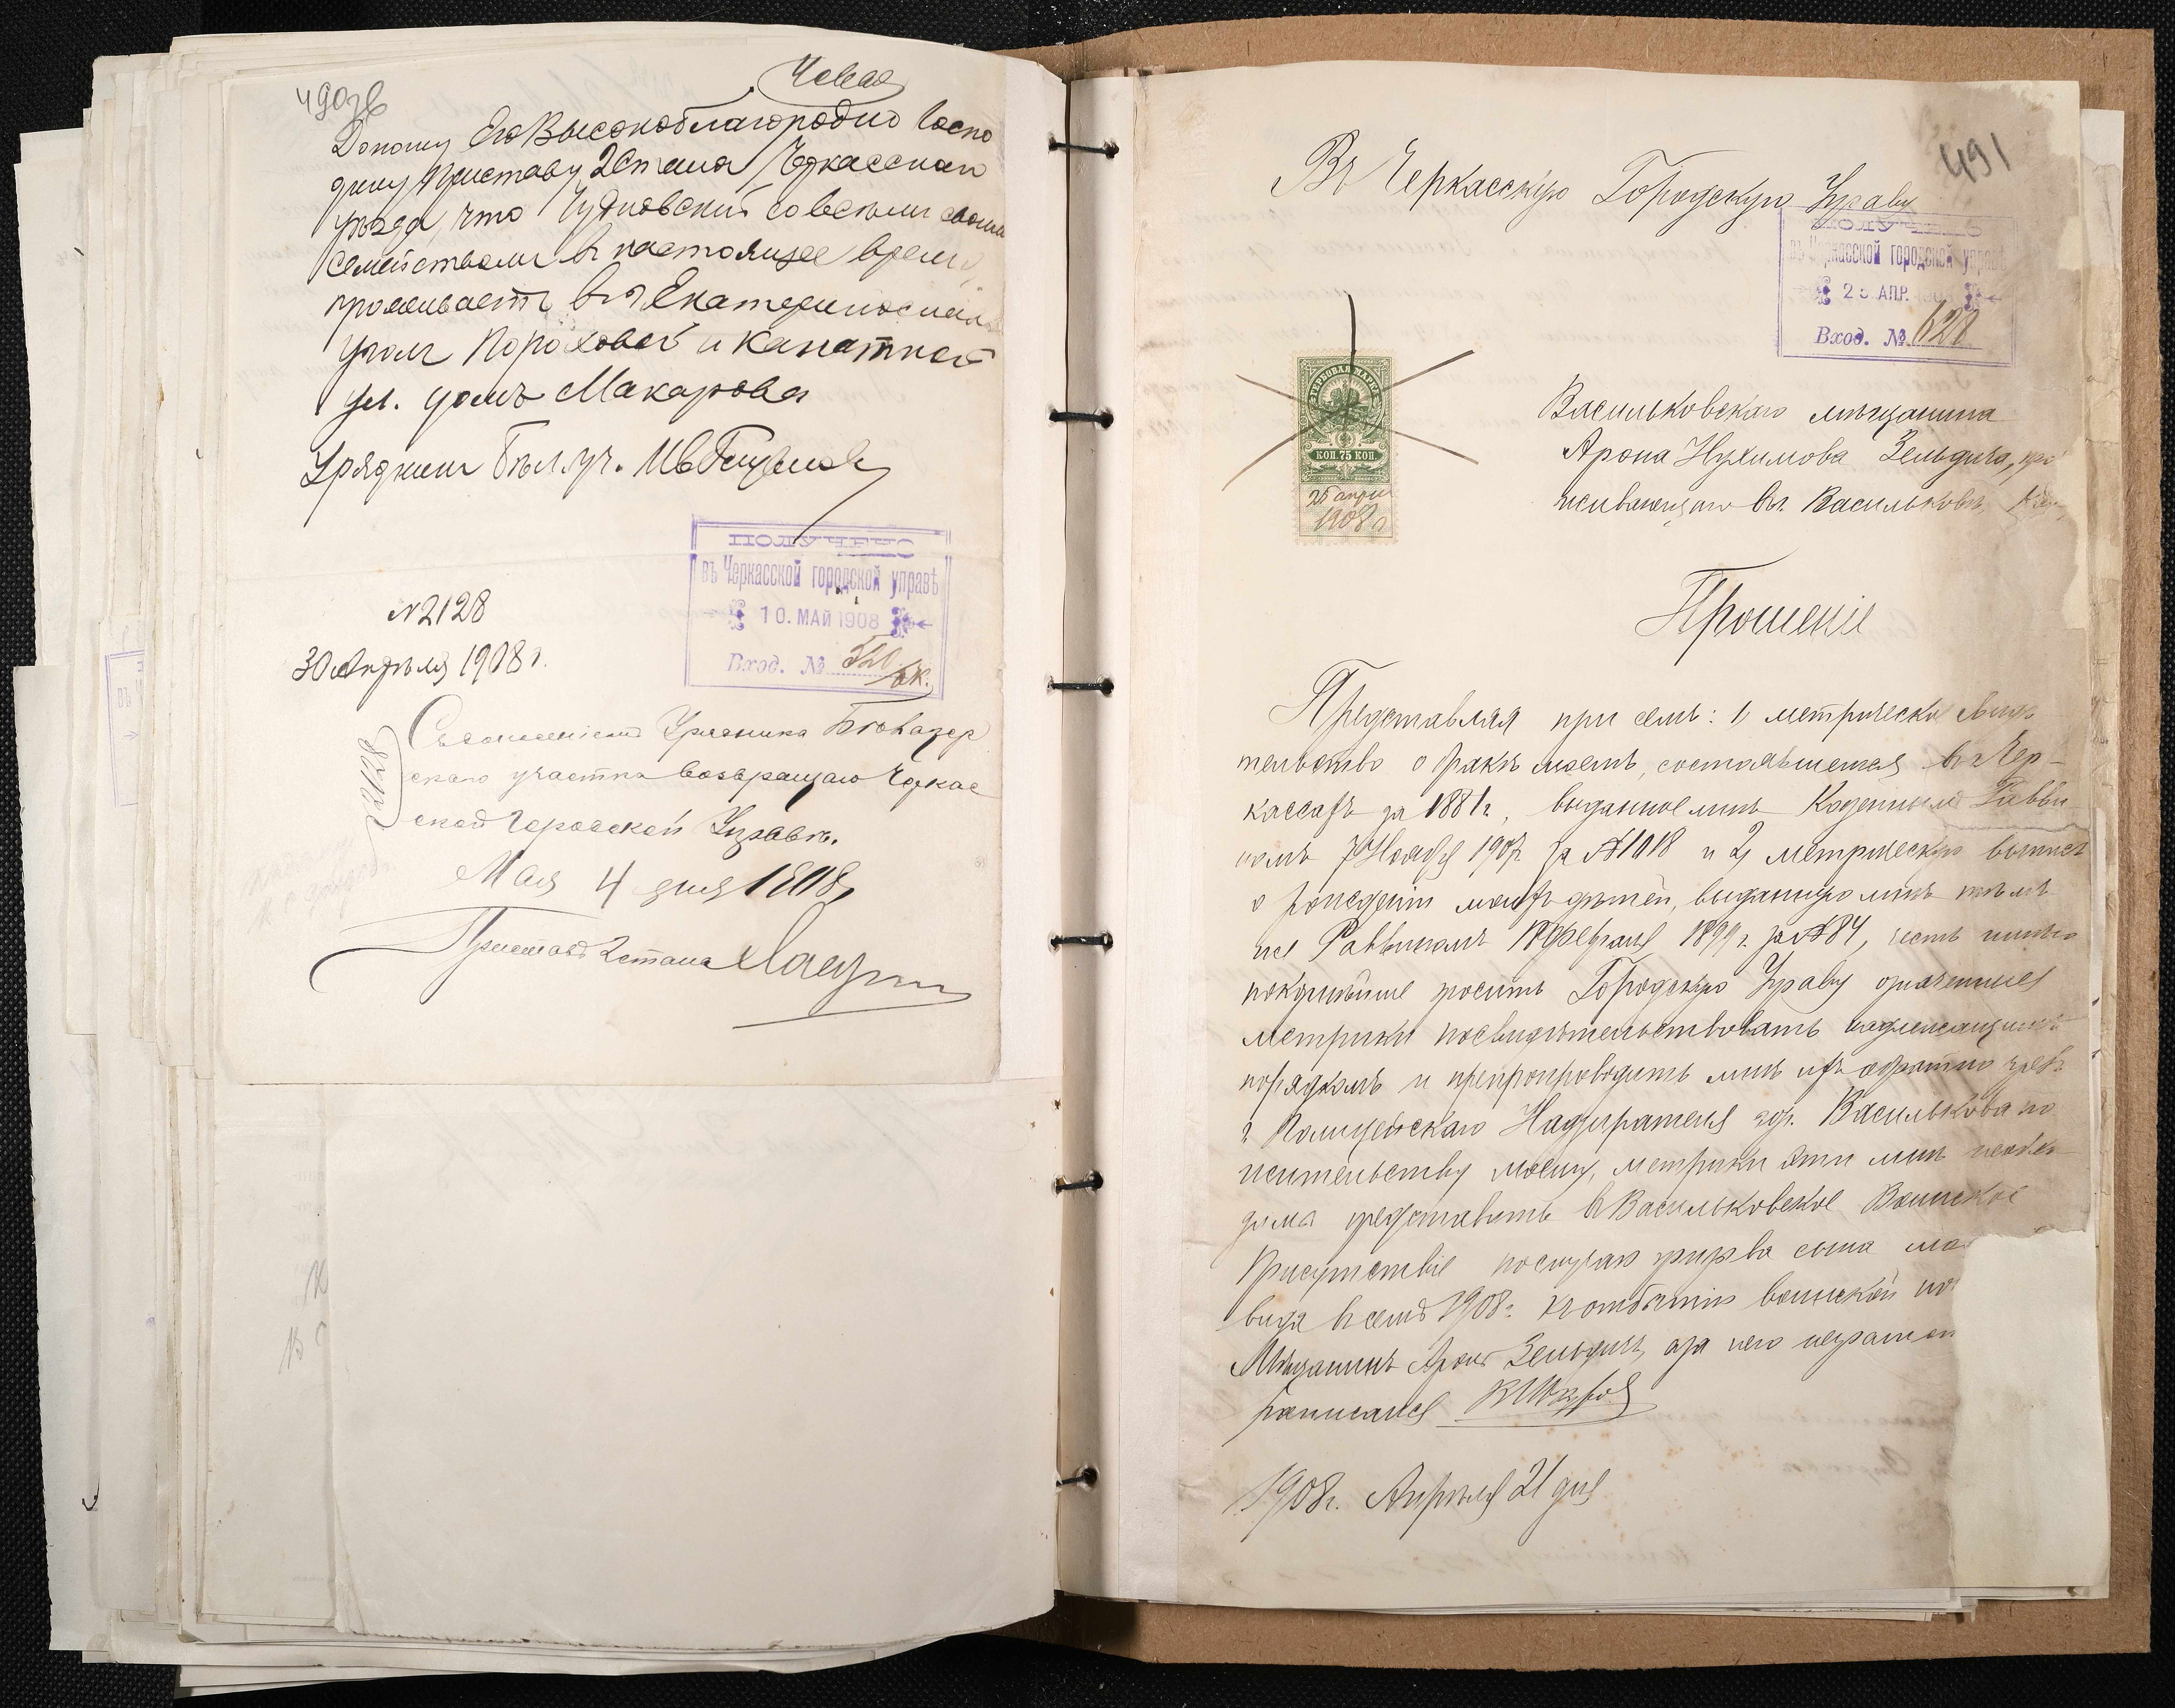 490об
Доношу Его Высокоблагородию Госпо
дину Приставу 2 Стана Черкасскаго
уѣзда, что Чудновский со всѣмъ своим
семействомъ в настоящее время
проживаетъ в г. Екатеринославѣ
уголъ Пороховой и Канатной
ул. домъ Макарова
Урядникъ
ПОЛУЧЕНО
въ Черкасской городской управѣ
10. МАЙ 1908
Вход. № 520/вк.
№ 2128
30 Апрѣля 1908 г.
№ 2128
Съ донесеніемъ Урядника Бѣлозер
скаго участка возвращаю Черкас
ской Городской Управѣ.
Мая 4 дня 1908 г.
Приставъ 2 стана
491
Въ Черкасскую Городскую Управу
ПОЛУЧЕНО
въ Черкасской городской управѣ
АПР. 1908
Вход. № 628
ГЕРБОВАЯ МАРКА
КОП. 75 КОП.
25 апрѣля
1908 г
Васильковскаго мѣщанина
Арона Нухимова Зельдича, про
живающаго въ г. Васильковѣ
Прошеніе
Представляя при семъ: 1, метрическое свидѣ
тельство о бракѣ моемъ, состоявшемся въ г. Чер-
кассахъ за 1881 г., выданное мнѣ Казеннымъ Равви-
номъ 7 Ноября 1907 за № 1018 и 2, метрическую выпись
о рожденіи моихъ дѣтей, выданную мнѣ тѣмъ
же Раввиномъ февраля 1899 г. за № 84, честь имѣю
покорнѣйше просить Городскую Управу означенныя
метрики посвидѣтельствовать надлежащимъ
порядкомъ и препроводить мнѣ ихъ обратно чрезъ
г. Полицейскаго Надзирателя гор. Василькова по
жительству моему, метрики эти мнѣ необхо
димо представить в Васильковское Воинское
Присутствіе по случаю призыва сына мо
вида в семъ 1908 г. къ отбытію воинской по
Мѣщанинъ Аронъ Зельдичъ, а за него неграмот
росписался
1908 г. Апрѣля 21 дня